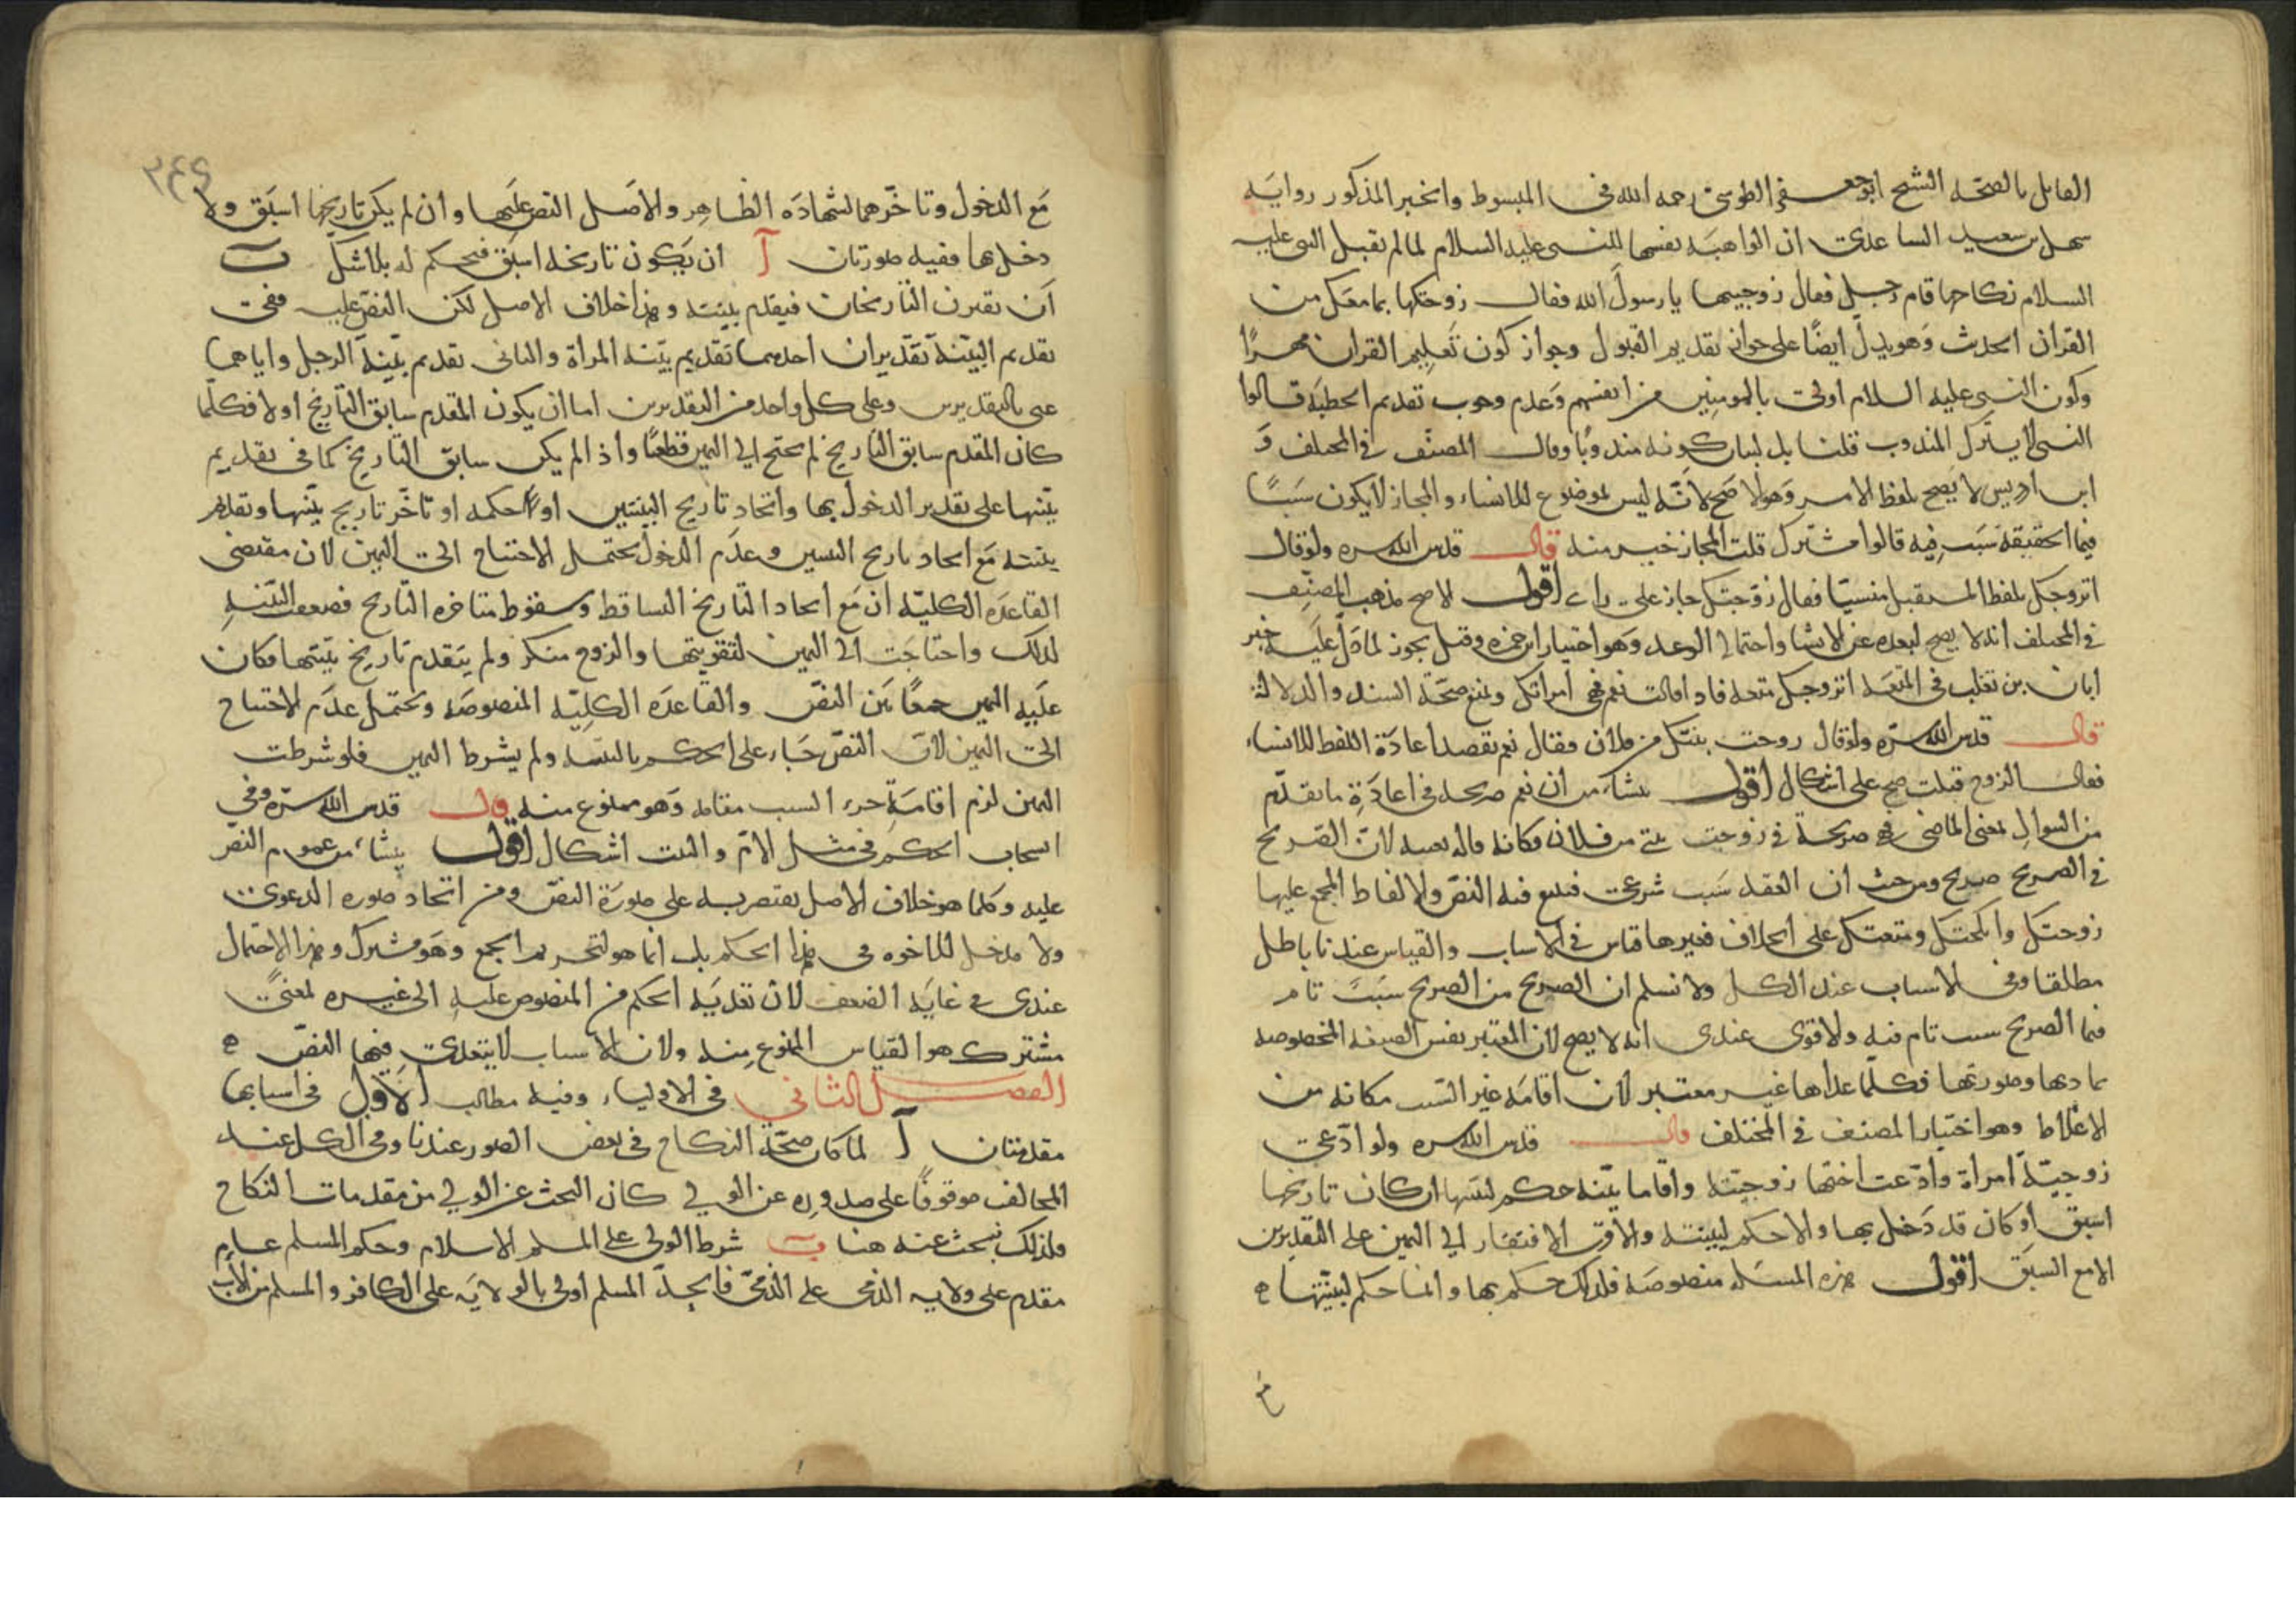 القايل بالصحة الشيخ ابو جعفر الطوسى رحمه الله فى المبسوط والخبر المذكور روايه
سهل بن سعيد الساعدى ان الواهبه نفسها للنبى عليه السلام لما لم يقبل النبى عليه
السلام نكاحها قام رجل فقال زوجنيها يا رسول الله فقال زوجتكها بما معك من
القران الحديث وهو يدل ايضًا على جواز تقديم القبول وجواز كون تعليم القران مهرًا
وكون النبى عليه السلام اولى بالمومنين من انفسهم وعدم وجوب تقديم الخطبة قالوا
النبى لا يترك المندوب قلنا بل لبيان كونه مندوبًا وقال المصنف فى المختلف و
ابن ادريس لا يصح بلفظ الامر وهو الاصح لانّه ليس بموضوع للانشاء والمجاز لا يكون سببًا
فيما الحقيقة سبب فيه قالوا مشترك قلت المجاز خير منه قال قدس الله سره ولو قال
اتزوجك بلفظ المستقبل منشيًا فقال زوجتك جاز على راى اقول الاصح مذهب المصنف
فى المختلف انه لا يصح لبعده عن الانشا واحتمال الوعد وهو اختيار ابن حمزه وقيل يجوز لما دلّ عليه خبر
ابان بن تغلب فى المتعه اتزوجك متعه فاذا قالت نعم فهى امراتك ونمنع صحّة السند والدلالة
قال قدس الله سرّه ولو قال زوجت بنتك من فلان فقال نعم بقصد اعادة اللفظ للانشاء
فقال الزوج قبلت صح على اشكال اقول ينشا من ان نعم صريحه فى اعادة ما تقدّم
من السوال لمعنى الماضى فهى صريحة فى زوجت بنتى من فلان فكانه قاله بعينه لانّ الصريح
فى الصريح صريح ومن حيث ان العقد سبب شرعى فيتبع فيه النصّ والالفاظ المجمع عليها
زوجتك وانكحتك ومتعتك على الخلاف فغيرها قياس فى الاسباب والقياس عندنا باطل
مطلقا وفى الاسباب عند الكل ولا نسلم ان الصريح من الصريح سبب تام
فيما الصريح سبب تام فيه والاقوى عندى انه لا يصح لان المعتبر نفس الصيغه المخصوصه
بمادتها وصورتها فكلّما عداها غير معتبر لان اقامة غير السبب مكانه من
الاغلاط وهو اختيار المصنف فى المختلف قال قدس الله سره ولو ادّعى
زوجيّة امراة وادّعت اختها زوجيته واقاما بيّنه حكم لبينتها ان كان تاريخها
اسبق او كان قد دخل بها والا حكم لبينته والاقرب الافتقار الى اليمين على التقديرين
الا مع السبق اقول هذه المسئله منصوصه فلذلك حكم بها وانما حكم لبينتها
٢٤٩
مع الدخول وتاخّرهما لشهادة الظاهر والاصل النص عليها وان لم يكن تاريخها اسبق ولا
دخل بها ففيه صورتان آ ان يكون تاريخه اسبق فيحكم له بلا اشكال ب
ان يقترن التاريخان فيقدم بينته وهذا خلاف الاصل لكن النصّ عليه ففى
تقديم البيّنة تقديران احدهما تقديم بيّنه المراة والثانى تقديم بيّنة الرجل واياهما
عنى بالتقديرين وعلى كل واحد من التقديرين اما ان يكون المقدم سابق التاريخ او لا فكلّما
كان المقدم سابق التاريخ لم يحتج الى اليمين قطعًا واذا لم يكن سابق التاريخ كما فى تقديم
بيّنتها على تقدير الدخول بها واتحاد تاريخ البينتين او تاخّر تاريخ بيّنتها وتقديم
بيّنته مع اتحاد تاريخ البينتين وعدم الدخول يحتمل الاحتياج الى اليمين لان مقتضى
القاعده الكليّه ان مع اتحاد التاريخ التساقط وسقوط متاخره التاريخ فضعفت البيّنه
لذلك واحتاجت الى اليمين لتقويتها والزوج منكر ولم يتقدم تاريخ بيّنتها فكان
عليه اليمين جمعًا بين النصّ والقاعده الكليّه المنصوصه ويحتمل عدم الاحتياج
الى اليمين لانّ النصّ جاء على الحكم بالبيّنه ولم يشرط اليمين فلو شرطت
اليمين لزم اقامة جزء السبب مقامه وهو ممنوع منه قال قدس الله سرّه وفى
انسحاب الحكم فى مثل الامّ والبنت اشكال اقول ينشاء من عموم النصّ
عليه وكلما هو خلاف الاصل يقتصر به على صورة النصّ ومن اتحاد صوره الدعوى
ولا مدخل للاخوه فى هذا الحكم بل انما هو لتحريم الجمع وهو مشترك وهذا الاحتمال
عندى فى غاية الضعف لان تعديه الحكم من المنصوص عليه الى غيره لمعنى
مشترك هو القياس الممنوع منه ولان الاسباب لا يتعدى فيها النصّ
الفصل الثانى فى الاولياء وفيه مطالب الاول فى اسبابها
مقدمتان آ لما كان صحّة النكاح فى بعض الصور عندنا وفى الكل عند
المخالف موقوفًا على صدوره عن الولى كان البحث عن الولى من مقدمات النكاح
فلذلك يبحث عنه هنا ب شرط الولى على المسلم الاسلام وحكم المسلم عام
مقدم على ولايه الذمى على الذمّى فالجدّ المسلم اولى بالولاية على الكافر والمسلم من الاب